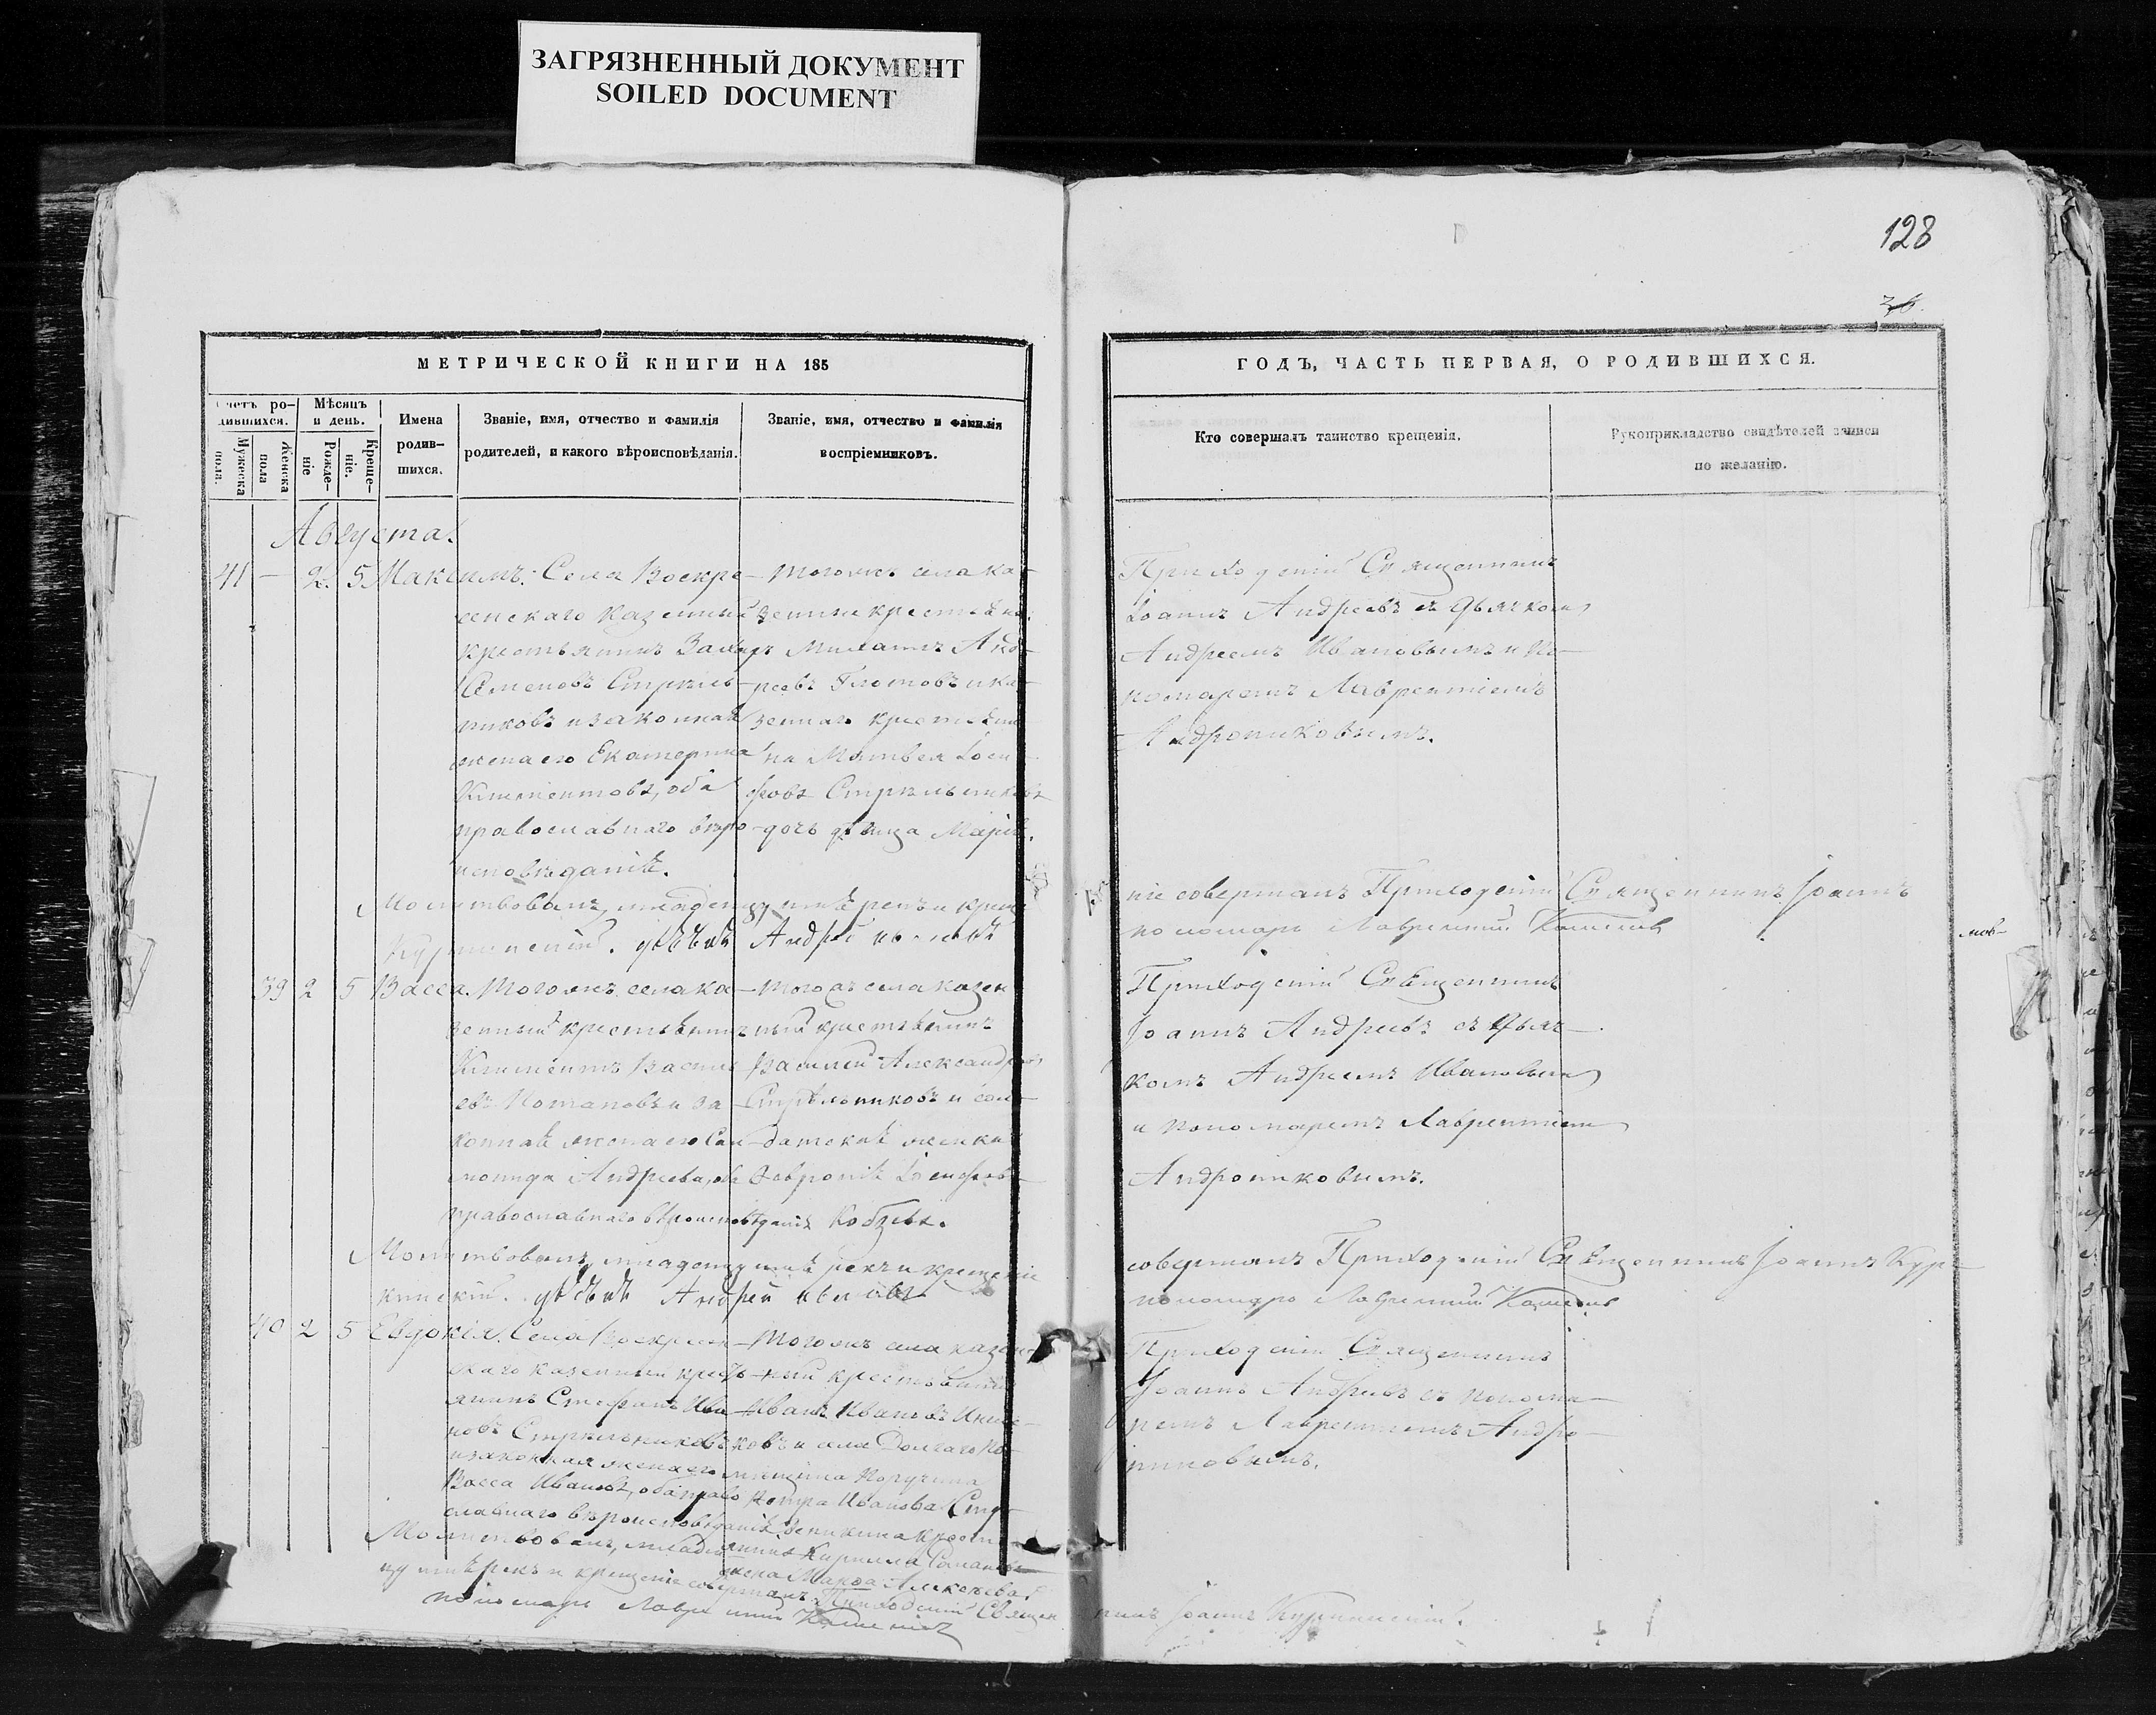 ЗАГРЯЗНЕННЫЙ ДОКУМЕНТ
SOILED DOCUMENT
128
МЕТРИЧЕСКОЙ КНИГИ НА 185
Счетъ ро-
дившихся.
Мужеска
пола.
Женска
пола
Мѣсяцъ
и день.
Рожде-
ніе
Креще-
ніе.
Имена
родив-
шихся.
Званіе, имя, отчество и фамилія
родителей, и какого вѣроисповѣданія.
Званіе, имя, отчество и фамилія
воспріемниковъ.
Августа.
41 – 2. 5 Максимъ.
Села Воскре-
сенскаго казенный
крестьянинъ Захаръ
Семеновъ Стрѣль-
никовъ и законная
жена его Екатерина
Климентова, оба
православнаго вѣро-
исповѣданія.
Тогожъ села ка-
зенный крестьянин
Михаилъ Анд-
реевъ Глотовъ и ка-
зеннаго крестьяни-
на Матвея Іоси-
фова Стрѣльникова
дочь дѣвица Марія.
Молитвовалъ, младенцу имя рекъ и креще-
Андрей
39 2 5 Васса.
Тогожъ села ка-
зенный крестьянинъ
Климентъ Василь
евъ Потаповъ и за-
конная жена его Сло-
монида Андреева, оба
православнаго вѣроисповѣданія
Тогожъ села казен
ный крестьянинъ
Василій Александровъ
Стрѣльниковъ и сол-
датская женка
Февронія Іосифова
Кобзева.
Молитвовалъ, младенцу имя рекъ и крещеніе
Андрей
40 2 5 Евдокія.
Села Воскресен-
скаго казенный кресть-
янинъ Стефанъ Ива-
новъ Стрѣльниковъ
и законная жена его
Васса Иванова, оба право
славнаго вѣроисповѣданія
Тогожъ села казен-
ный крестьянинъ
Иванъ Ивановъ
ковъ и села Долгаго по-
мѣщика Поручика
Петра Иванова
крестья-
нина Кирилла Романова
жена Марфа Алексѣева.
Молитвовалъ, младен
цу имя рекъ и крещеніе совершалъ Приходскій Священ
пономарь Лаврентій
ГОДЪ, ЧАСТЬ ПЕРВАЯ, О РОДИВШИХСЯ.
Кто совершалъ таинство крещенія.
Рукоприкладство свидѣтелей записи
по желанію.
Приходскій Священникъ
Іоаннъ Андреевъ съ Дьячкомъ
Андреемъ Ивановымъ и По-
номаремъ Лаврентіемъ
Андрониковымъ.
ніе совершалъ Приходскій Священникъ Іоаннъ
пономарь Лаврентій
Приходскій Священникъ
Іоаннъ Андреевъ съ Дьяч-
комъ Андреемъ Ивановымъ
и Пономаремъ Лаврентіемъ
Андрониковымъ.
совершалъ Приходскій Священникъ Іоаннъ Кур-
пономарь Лаврентій
Приходскій Священникъ
Іоаннъ Андреевъ съ Понома-
ремъ Лаврентіемъ Андро-
никовымъ.
никъ Іоаннъ